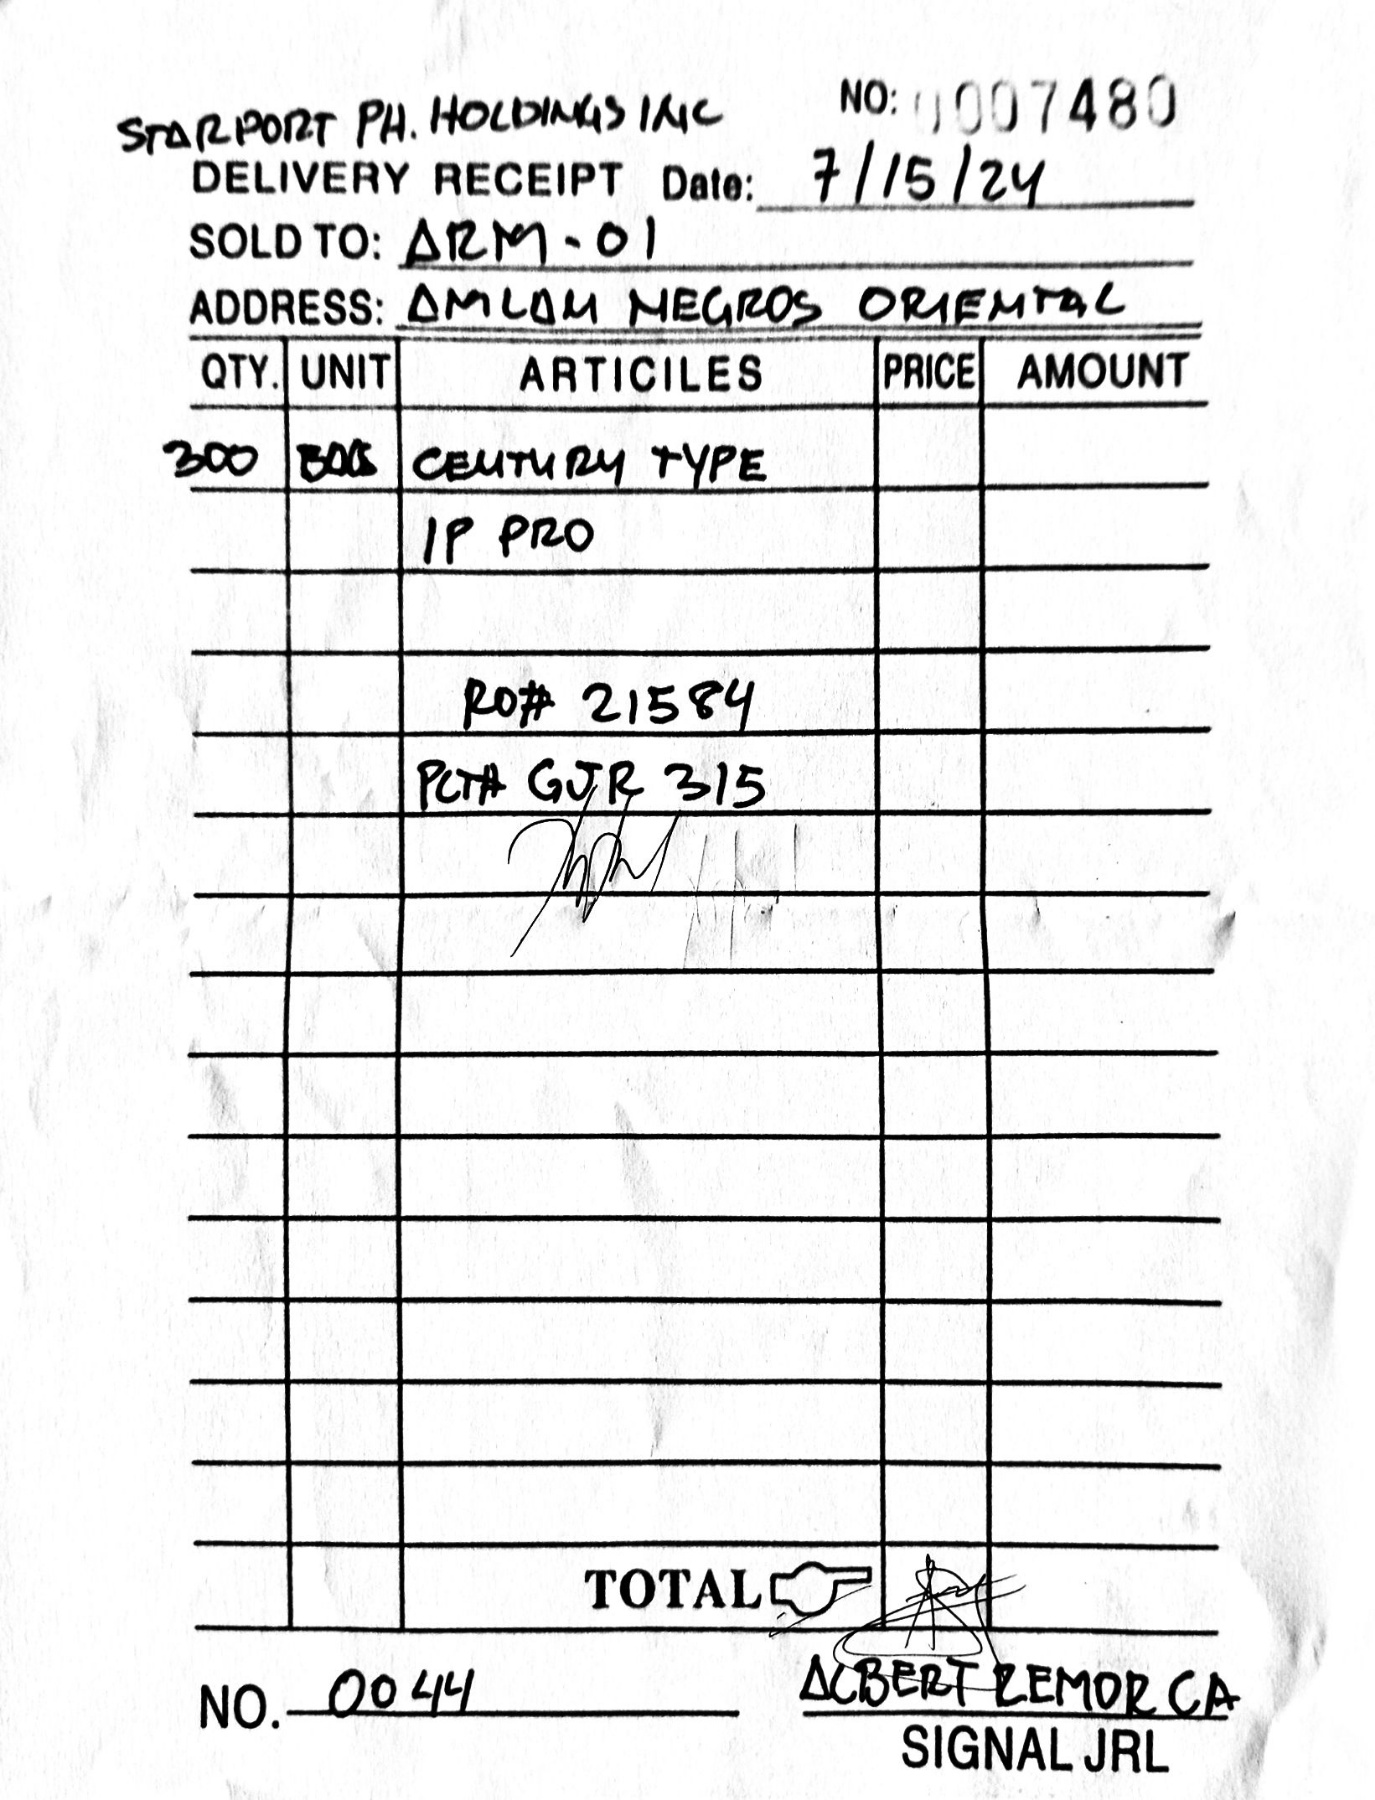 STARPORT PH. HOLDINGS INC NO: 0007480
DELIVERY RECEIPT Date: 7/15/24
SOLD TO: ARM-01
ADDRESS: AMLAN NEGROS ORIENTAL
QTY. UNIT ARTICILES PRICE AMOUNT
300 BAGS CENTURY TYPE
1P PRO
RO# 21584
PLT# GJR 315
TOTAL
NO. 0044 ALBERT REMOR CA
SIGNAL JRL